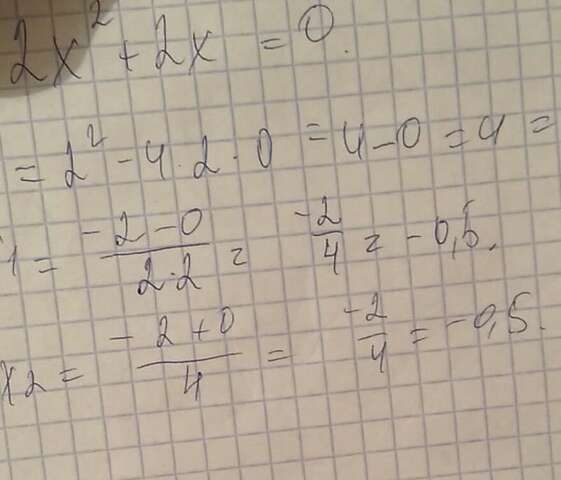 2x² + 2x = 0.
= 2² - 4 · 2 · 0 = 4 - 0 = 4 =
1 = (-2 - 0)/(2 · 2) = -2/4 = -0,5.
x2 = (-2 + 0)/4 = -2/4 = -0,5.